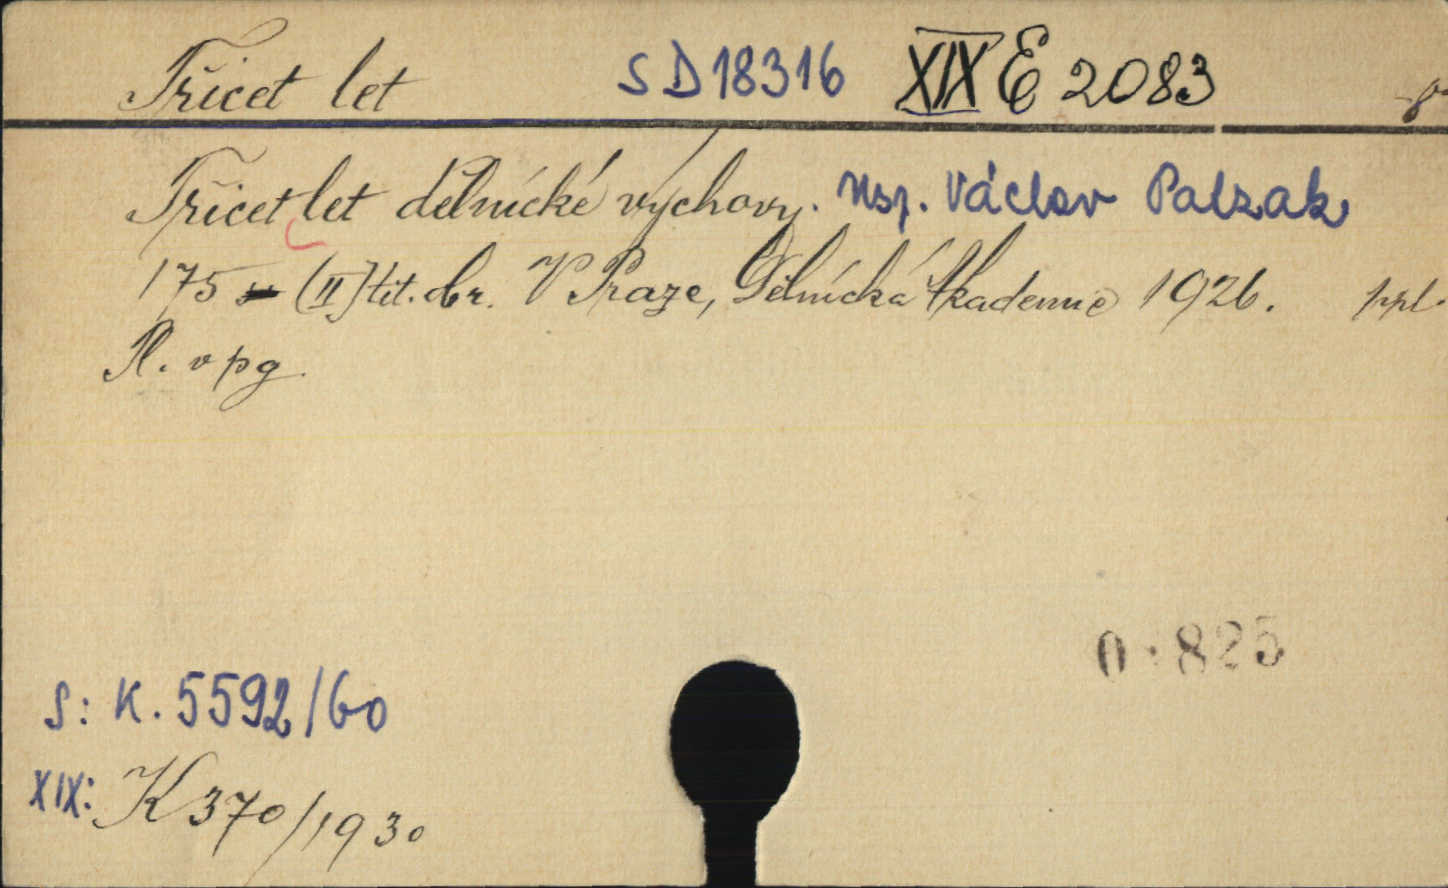 Třicet let SD 18316 XIX E 2083 8°
Třicet let dělnické výchovy. Usp. Václav Patzak
175 - (II) tit. obr. V Praze, Dělnická Akademie 1926. ppl.
Pl. v pg.
0·825
S: K. 5592/60
XIX: K 370/1930